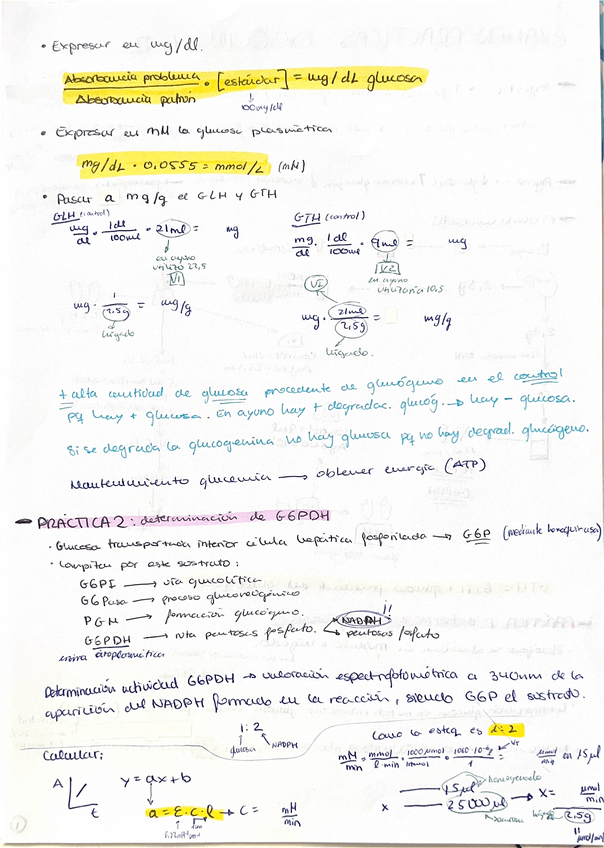 • Expresar en mg/dl.
Absorbancia problema / Absorbancia patrón • [estándar] = mg/dL glucosa
↓ 100mg/dl
• Expresar en mM la glucosa plasmática
mg/dL • 0,0555 = mmol/L (mM)
• Pasar a mg/g el GLH y GTH
GLH (control)
mg/dl • 1dl/100ml • 21ml = mg
en ayuno utilizo 22,5
V1
mg • 1/2,5g = mg/g
hígado
GTH (control)
mg/dl • 1dl/100ml • 9ml = mg
V2
en ayuno utilizaría 10,5
V1
mg • 21ml/2,5g = mg/g
hígado.
+ alta cantidad de glucosa procedente de glucógeno en el control
pq hay + glucosa. En ayuno hay + degradac. glucóg. → hay - glucosa.
Si se degrada la glucogenina no hay glucosa pq no hay degrad. glucógeno.
Mantenimiento glucemia → obtener energía (ATP)
— PRÁCTICA 2: determinación de G6PDH
• Glucosa transportada interior célula hepática fosforilada → G6P (mediante hexoquinasa)
• Compiten por este sustrato:
G6PI → vía glucolítica
G6Pasa → proceso gluconeogénico
PGM → formación glucógeno.
G6PDH → ruta pentosas fosfato.
¡!
NADPH
pentosas fosfato
enzima citoplasmática
Determinación actividad G6PDH → valoración espectrofotométrica a 340nm de la
aparición del NADPH formado en la reacción, siendo G6P el sustrato.
1:2
glucosa NADPH
Como la esteq. es 1:2
Calcular:
mM/min = mmol/l·min • 1000µmol/1mmol •
VT
µmol/min en 15µl
A
t
y = ax + b
a = ε·c·l → c = mM/min
1cm
15µl
homogenado
x 25000µl → x = µmol/min
2,5g
µmol/min/g
1